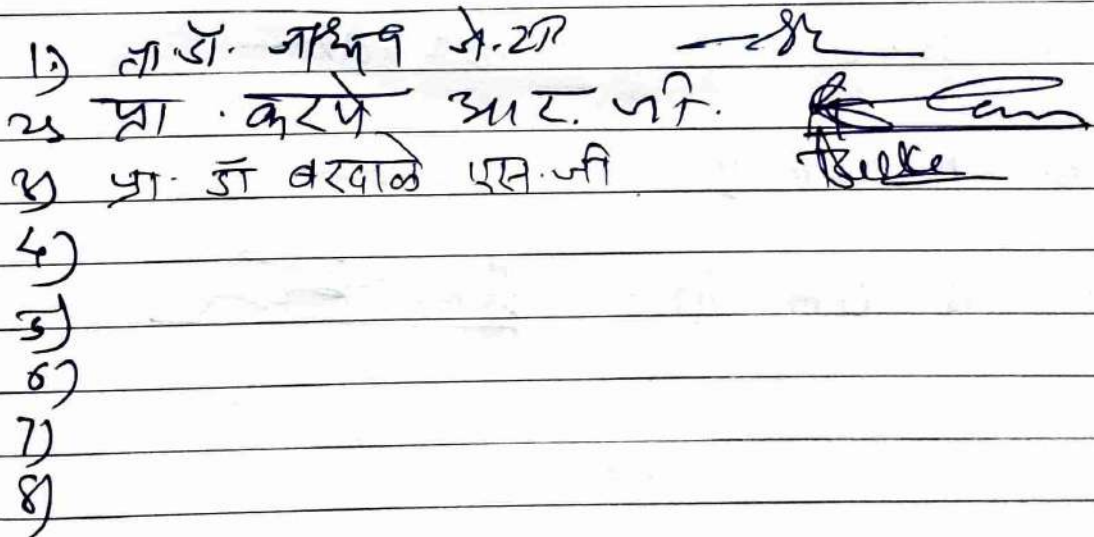 1) प्रा.डॉ. जाधव जे.या
2) प्रा. करपे आर. जी.
3) प्रा. डॉ बरदाळे एस.जी
4)
5)
6)
7)
8)